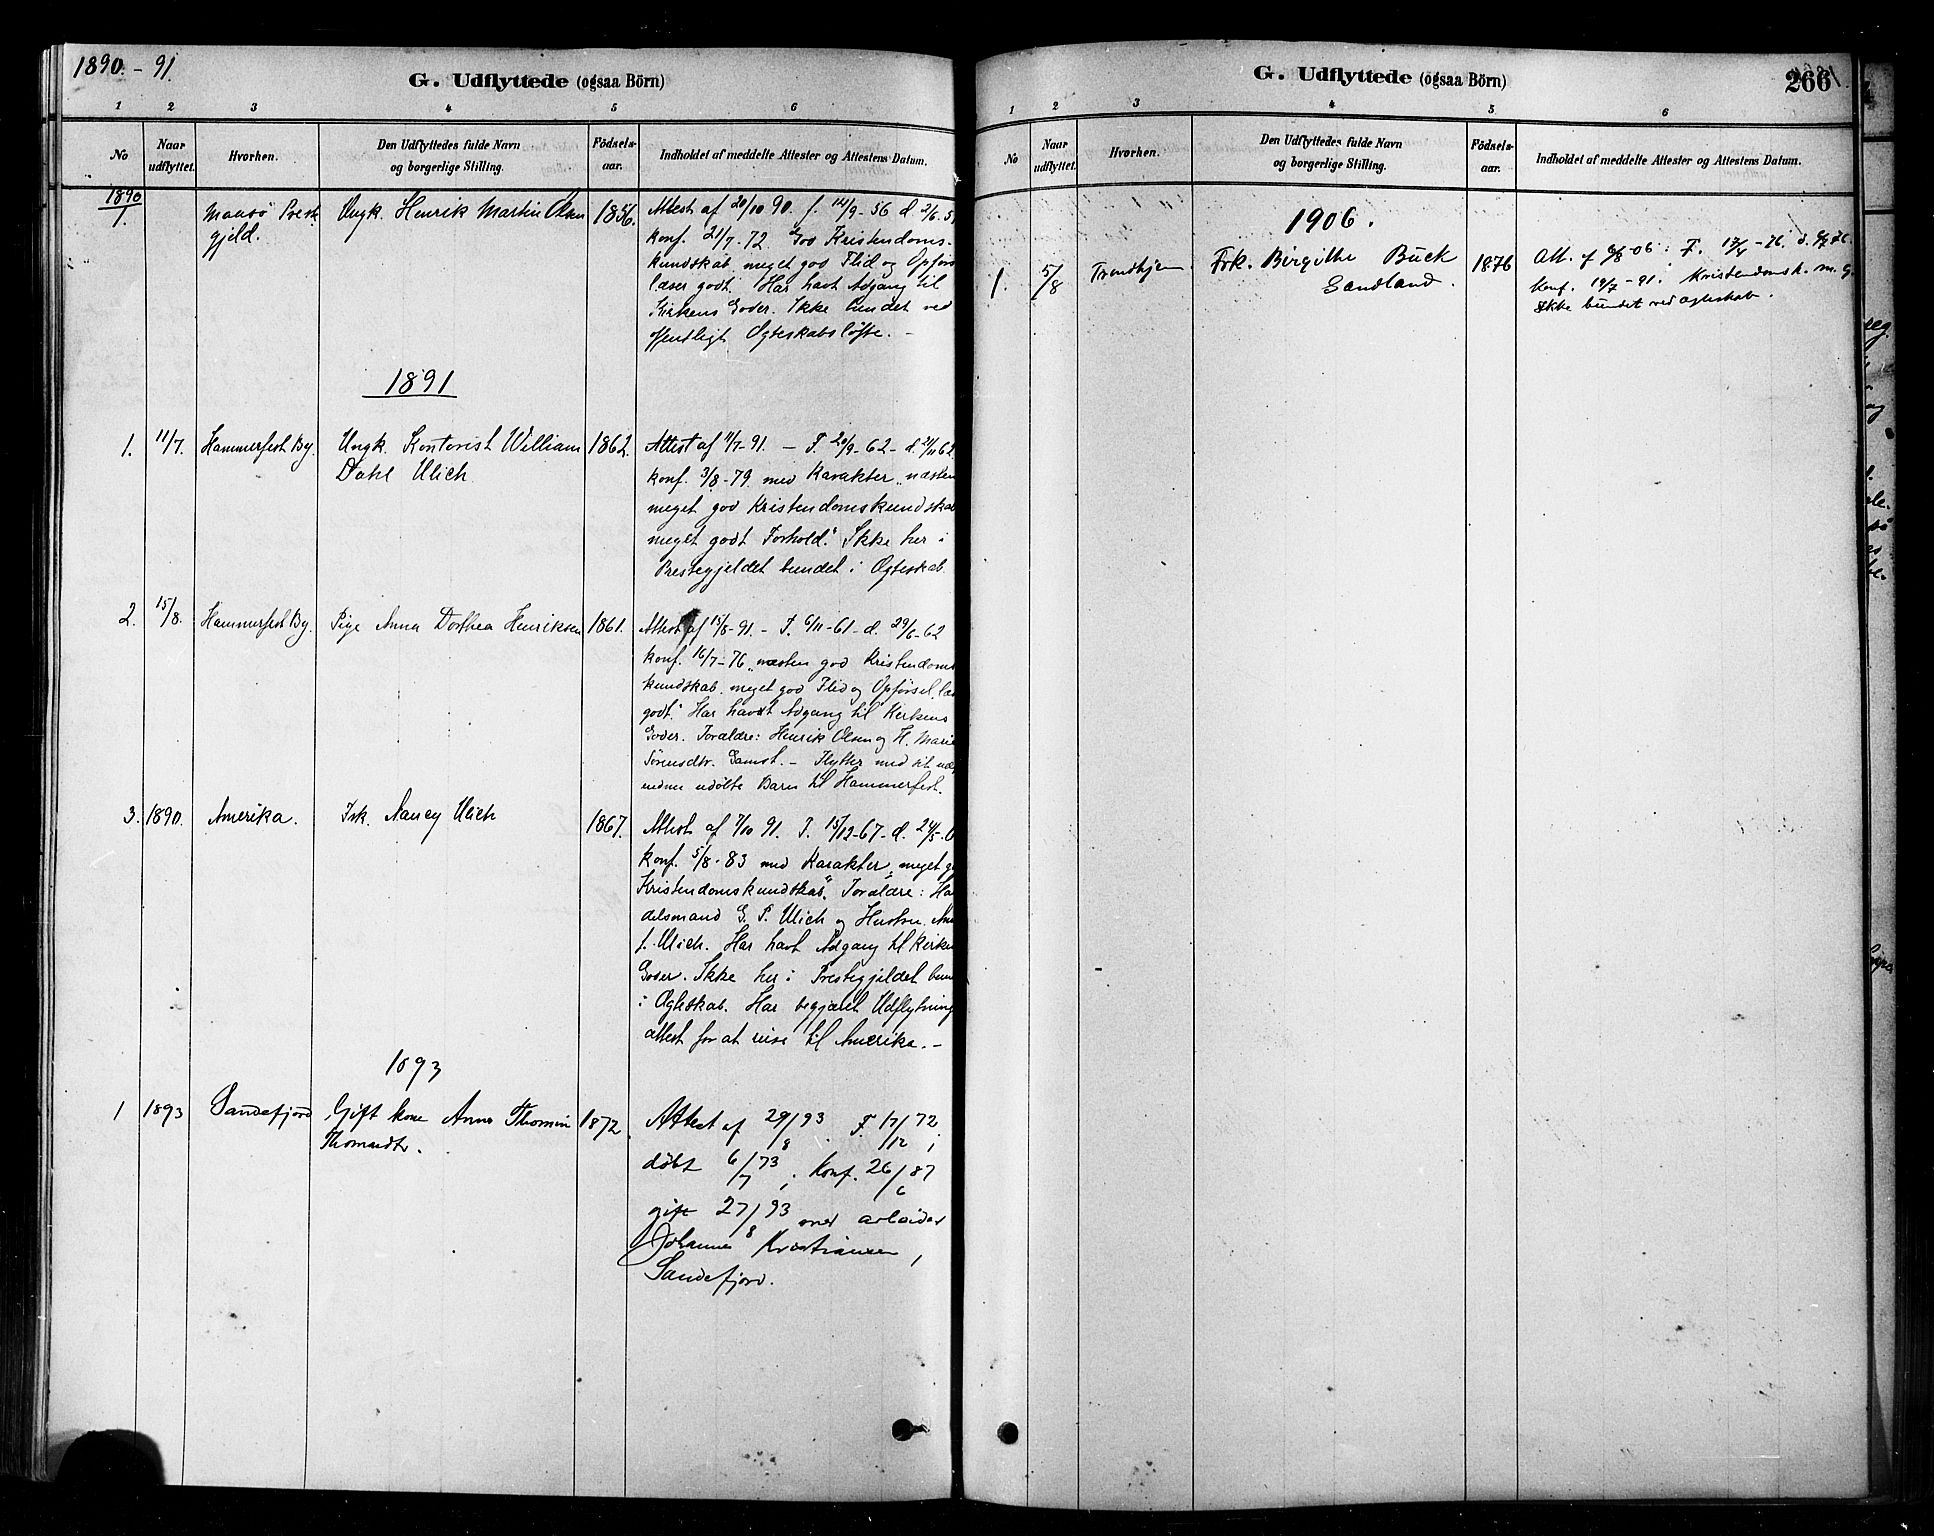 1890 - 91.
G. Udflyttede (ogsaa Börn)
1 2 3 4 5 6
No
Naar udflyttet.
Hvorhen.
Den Udflyttedes fulde Navn og borgerlige Stilling.
Födsels-aar.
Indholdet af meddelte Attester og Attestens Datum.
1890
1. Maasö Prest-
gjeld.
Ungk. Henrik Martin Olsen
1856.
Attest af 20/10 90. f. 14/9-56 d. 2/6. 5
konf. 21/7-72. God Kristendoms-
kundskab, meget god Flid og Opførs
læser godt. Har havt Adgang til
Kirkens Goder. Ikke bundet ved
offentligt Ægteskabsløfte. -
1891
1. 11/7. Hammerfest By.
Ungk. Kontorist William
Dahl Ulich
1862.
Attest af 11/7-91. - F. 20/9-62 - d. 21/11 62.
konf. 3/8-79. med Karakter „næsten
meget god Kristendomskundskab
meget godt Forhold." Ikke her i
Prestegjeldet bundet i Ægteskab.
2. 15/8. Hammerfest By.
Pige Anna Dorthea Henriksen
1861.
Attest af 15/8-91. - F. 6/11-61-d. 29/6-62
konf. 16/7-76 „næsten god Kristendoms
kundskab, meget god Flid og Opførsel, læ
godt." Har havt Adgang til Kirkens
Goder. Forældre: Henrik Olsen og H. Marie
Sörensdtr. Gamst. - Flytter med sit
udøbte Barn til Hammerfest.
3. 1890. Amerika.
Frk. Nancy Ulich
1867.
Attest af 7/10 91. F. 15/12-67-d. 24/5-
konf. 5/8-83 med Karakter „meget g
Kristendomskundskab". Forældre: Han
delsmand G. P. Ulich og Hustru
f. Ulich. Har havt Adgang til Kirken
Goder. Ikke her i Prestegjeldet bun
i Ægteskab. Har begjæret Udflytning
attest for at reise til Amerika. -
1893
1 1893 Sandefjord
Gift kone Anna Thomine
Thomasdtr.
1872.
Attest af 29/8 93. F. 17/12 72,
døbt 6/7 73, konf. 26/6 87
gift 27/8 93 med arbeider
Johannes Kristiansen,
Sandefjord.
G. Udflyttede (ogsaa Börn)
266
1 2 3 4 5 6
No
Naar udflyttet.
Hvorhen.
Den Udflyttedes fulde Navn og borgerlige Stilling.
Födsels-aar.
Indholdet af meddelte Attester og Attestens Datum.
1906.
1. 5/8 Trondhjem
Frk. Birgithe Buck
Sandland.
1876
Att. af 6/8-06: F. 17/4-76. d. 76.
Konf. 19/7-91. Kristendomsk. m. g.
Ikke bundet ved ægteskab.